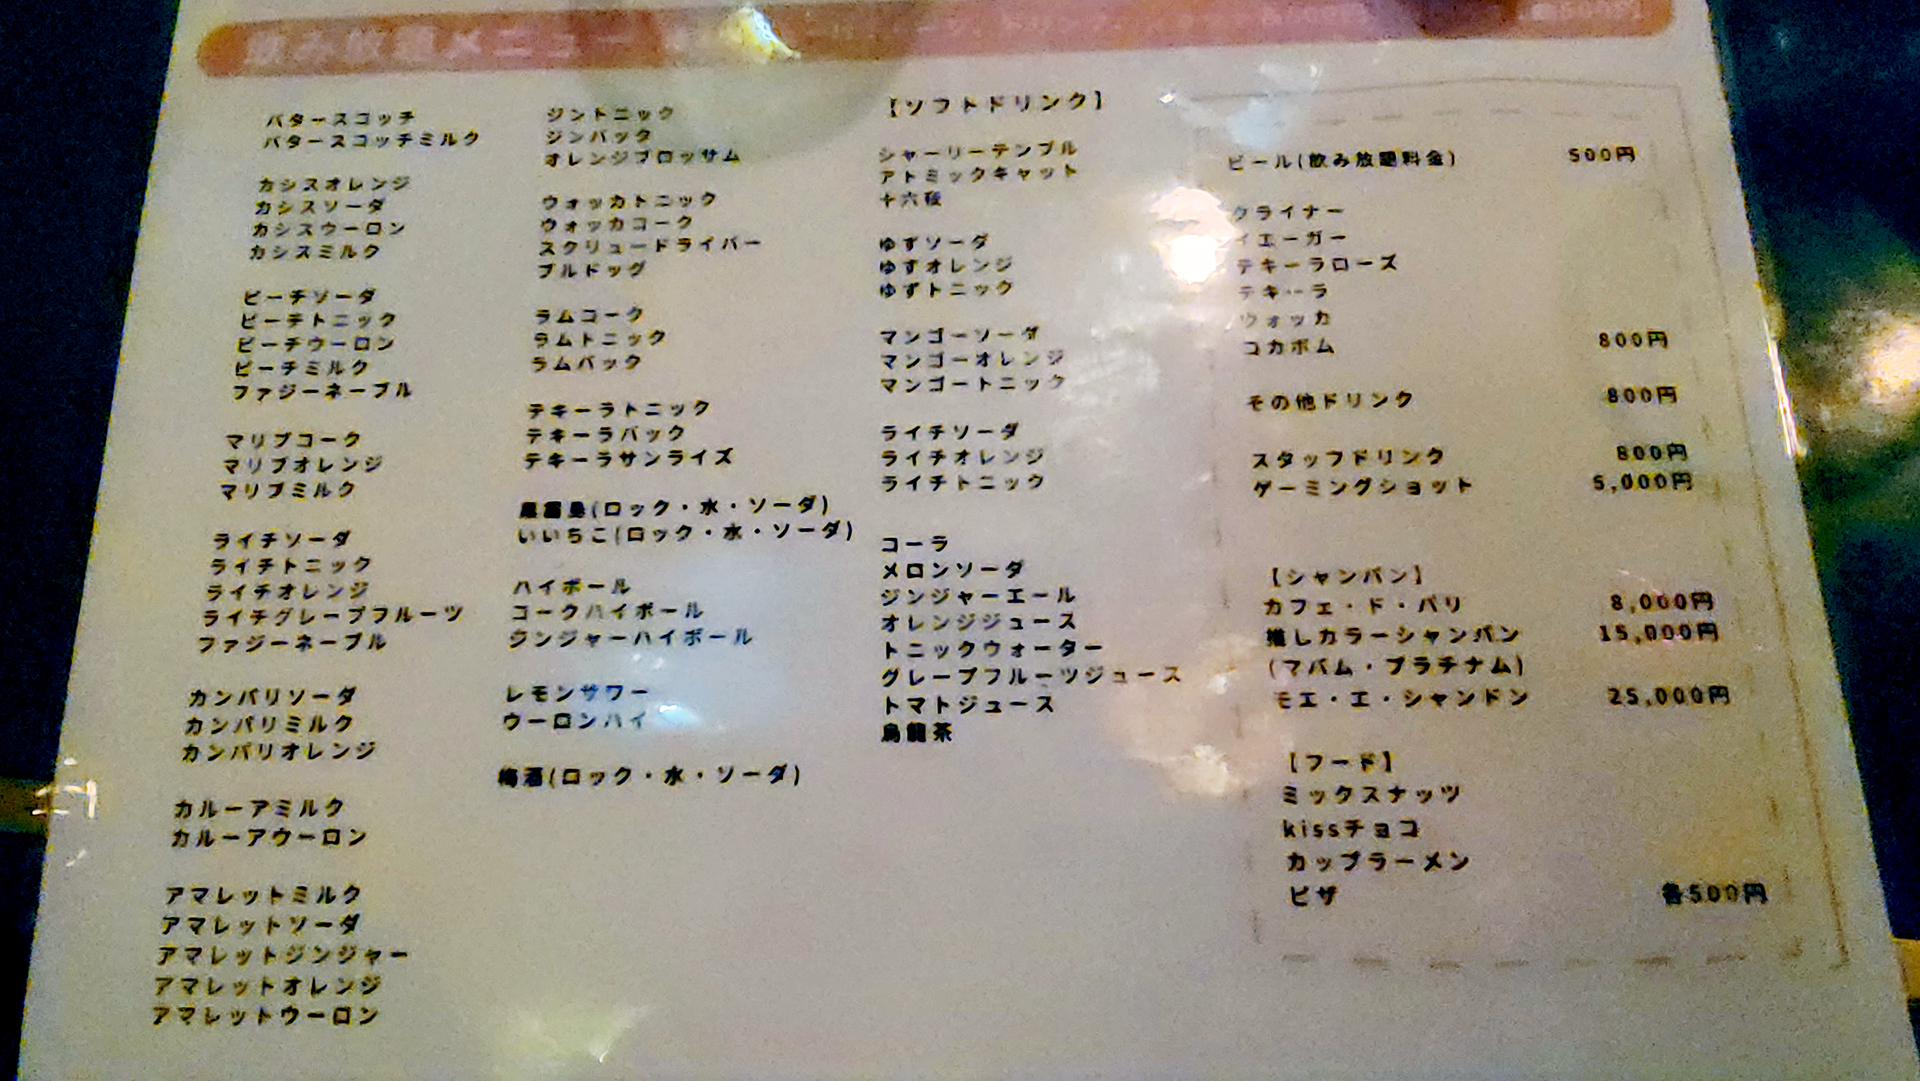 飲み放題メニュー
バタースコッチ
バタースコッチミルク
カシスオレンジ
カシスソーダ
カシスウーロン
カシスミルク
ピーチソーダ
ピーチトニック
ピーチウーロン
ピーチミルク
ファジーネーブル
マリブコーク
マリブオレンジ
マリブミルク
ライチソーダ
ライチトニック
ライチオレンジ
ライチグレープフルーツ
ファジーネーブル
カンパリソーダ
カンパリミルク
カンパリオレンジ
カルーアミルク
カルーアウーロン
アマレットミルク
アマレットソーダ
アマレットジンジャー
アマレットオレンジ
アマレットウーロン
ジントニック
ジンバック
オレンジブロッサム
ウォッカトニック
ウォッカコーク
スクリュードライバー
ブルドッグ
ラムコーク
ラムトニック
ラムバック
テキーラトニック
テキーラバック
テキーラサンライズ
黒霧島(ロック・水・ソーダ)
いいちこ(ロック・水・ソーダ)
ハイボール
コークハイボール
ジンジャーハイボール
レモンサワー
ウーロンハイ
梅酒(ロック・水・ソーダ)
【ソフトドリンク】
シャーリーテンプル
アトミックキャット
十六夜
ゆずソーダ
ゆずオレンジ
ゆずトニック
マンゴーソーダ
マンゴーオレンジ
マンゴートニック
ライチソーダ
ライチオレンジ
ライチトニック
コーラ
メロンソーダ
ジンジャーエール
オレンジジュース
トニックウォーター
グレープフルーツジュース
トマトジュース
烏龍茶
ビール(飲み放題料金) 500円
クライナー
イエーガー
テキーラローズ
テキーラ
ウォッカ
コカボム 800円
その他ドリンク 800円
スタッフドリンク 800円
ゲーミングショット 5,000円
【シャンパン】
カフェ・ド・パリ 8,000円
推しカラーシャンパン 15,000円
(マバム・プラチナム)
モエ・エ・シャンドン 25,000円
【フード】
ミックスナッツ
kissチョコ
カップラーメン
ピザ 各500円